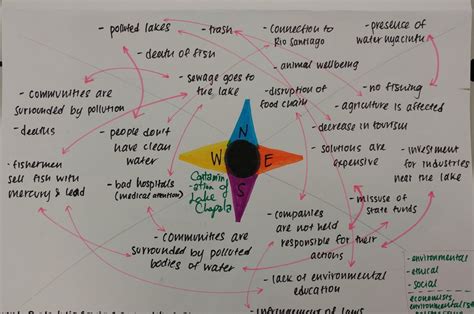 - polluted lakes
- trash
- connection to
Rio Santiago
- presence of
water hyacinth
- death of fish
- animal wellbeing
- sewage goes to
the lake
- communities are
surrounded by pollution
- disruption of
food chain
- no fishing
- agriculture is affected
- deaths
- people don't
have clean
water
- decrease in tourism
- solutions are
expensive
- investment
for industries
near the lake
N
W
E
S
Contamin
-ation of
Lake of
Chapala
- fishermen
sell fish with
mercury & lead
- bad hospitals
(medical attention)
- missuse of
state funds
- companies
are not held
responsible for their
actions
- communities are
surrounded by polluted
bodies of water
- lack of environmental
education
- environmental
- ethical
- social
economists,
- infringement of laws